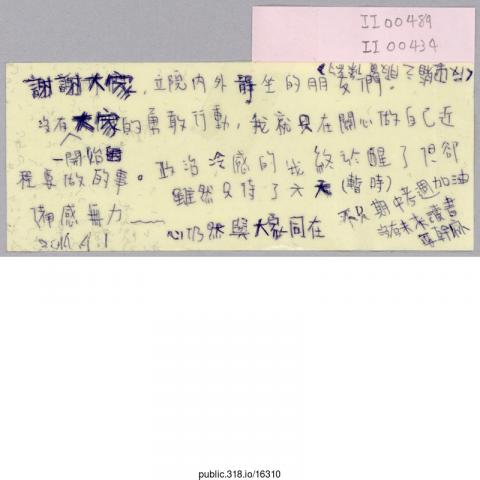 II 00489
II 00434
謝謝大家, 立院內外靜坐的朋友們。
沒有大家的勇敢行動, 我就只在關心做自己近
一開始
程要做的事。政治冷感的我終於醒了但卻
雖然只待了六天(暫時)
倍感無力
心仍然與大家同在
期中考週加油
2014.4.1
public.318.io/16310